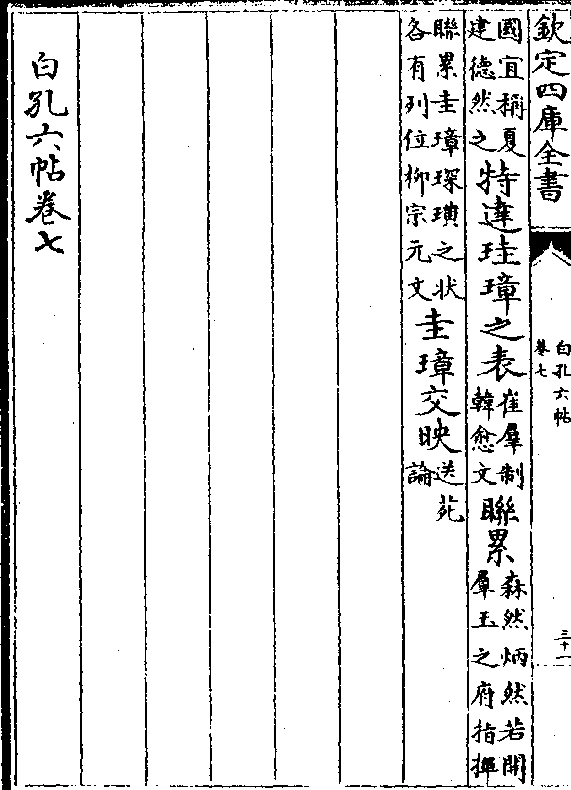 欽定四庫全書
白孔六帖
卷七
三十一
國宜稱夏建德然之特達珪璋之表崔羣制韓愈文聯累森然炳然若開羣玉之府指揮
聯累圭璋琛璜之状各有列位柳宗元文圭璋交映送苑論
白孔六帖卷七